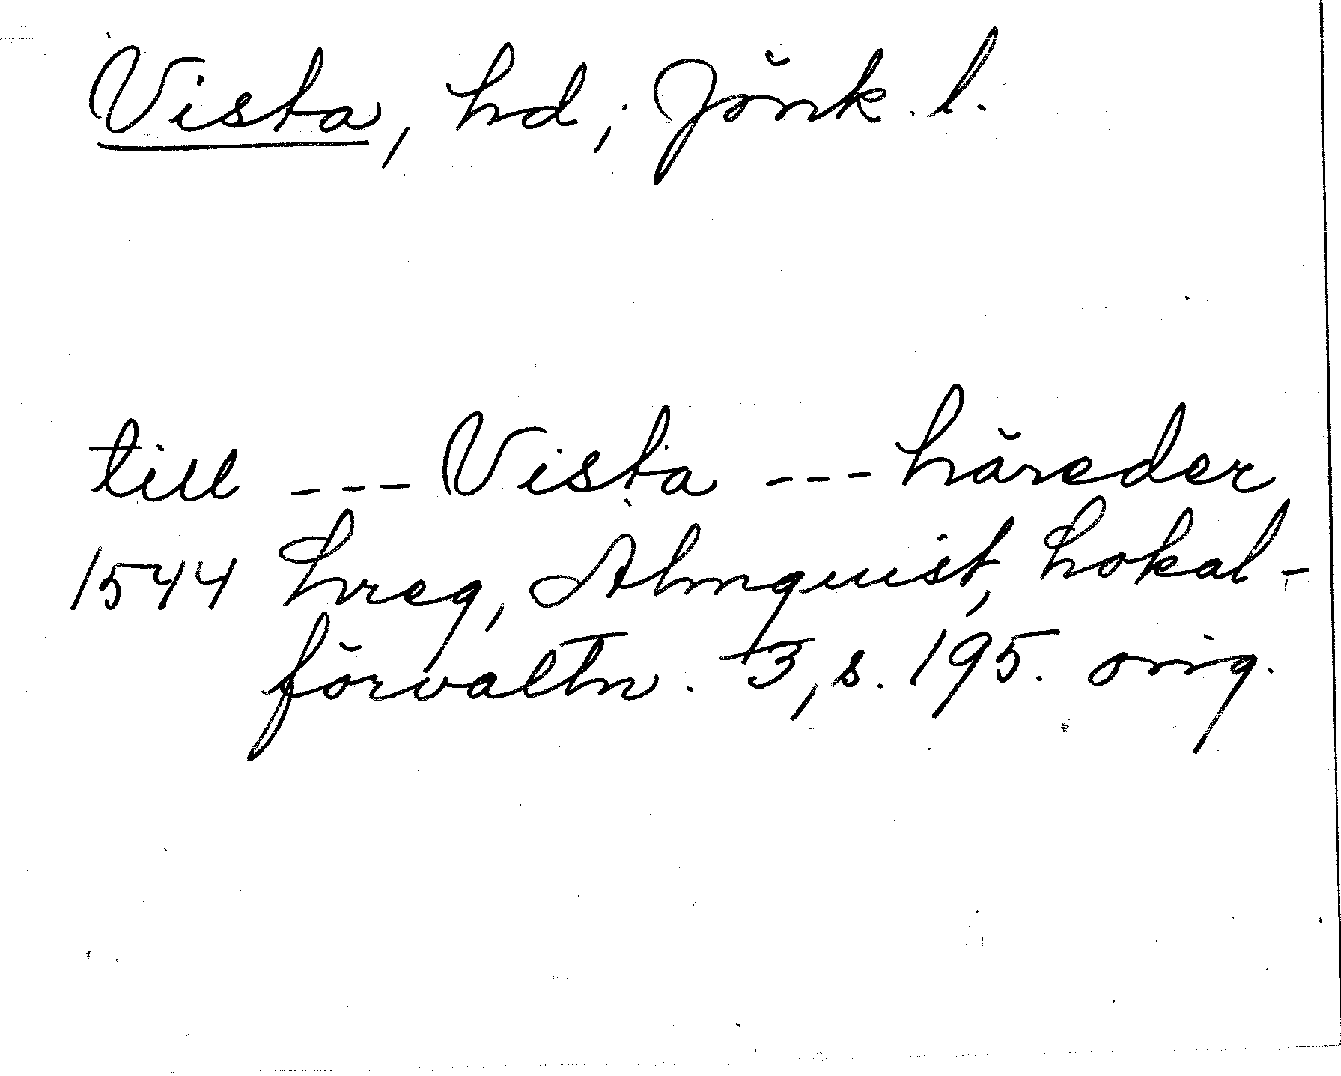 Vista, hd, Jönk. l.
till --- Vista --- häreder
1544 hreg, Almquist, Lokal-
förvaltn. 3, s. 195. orig.